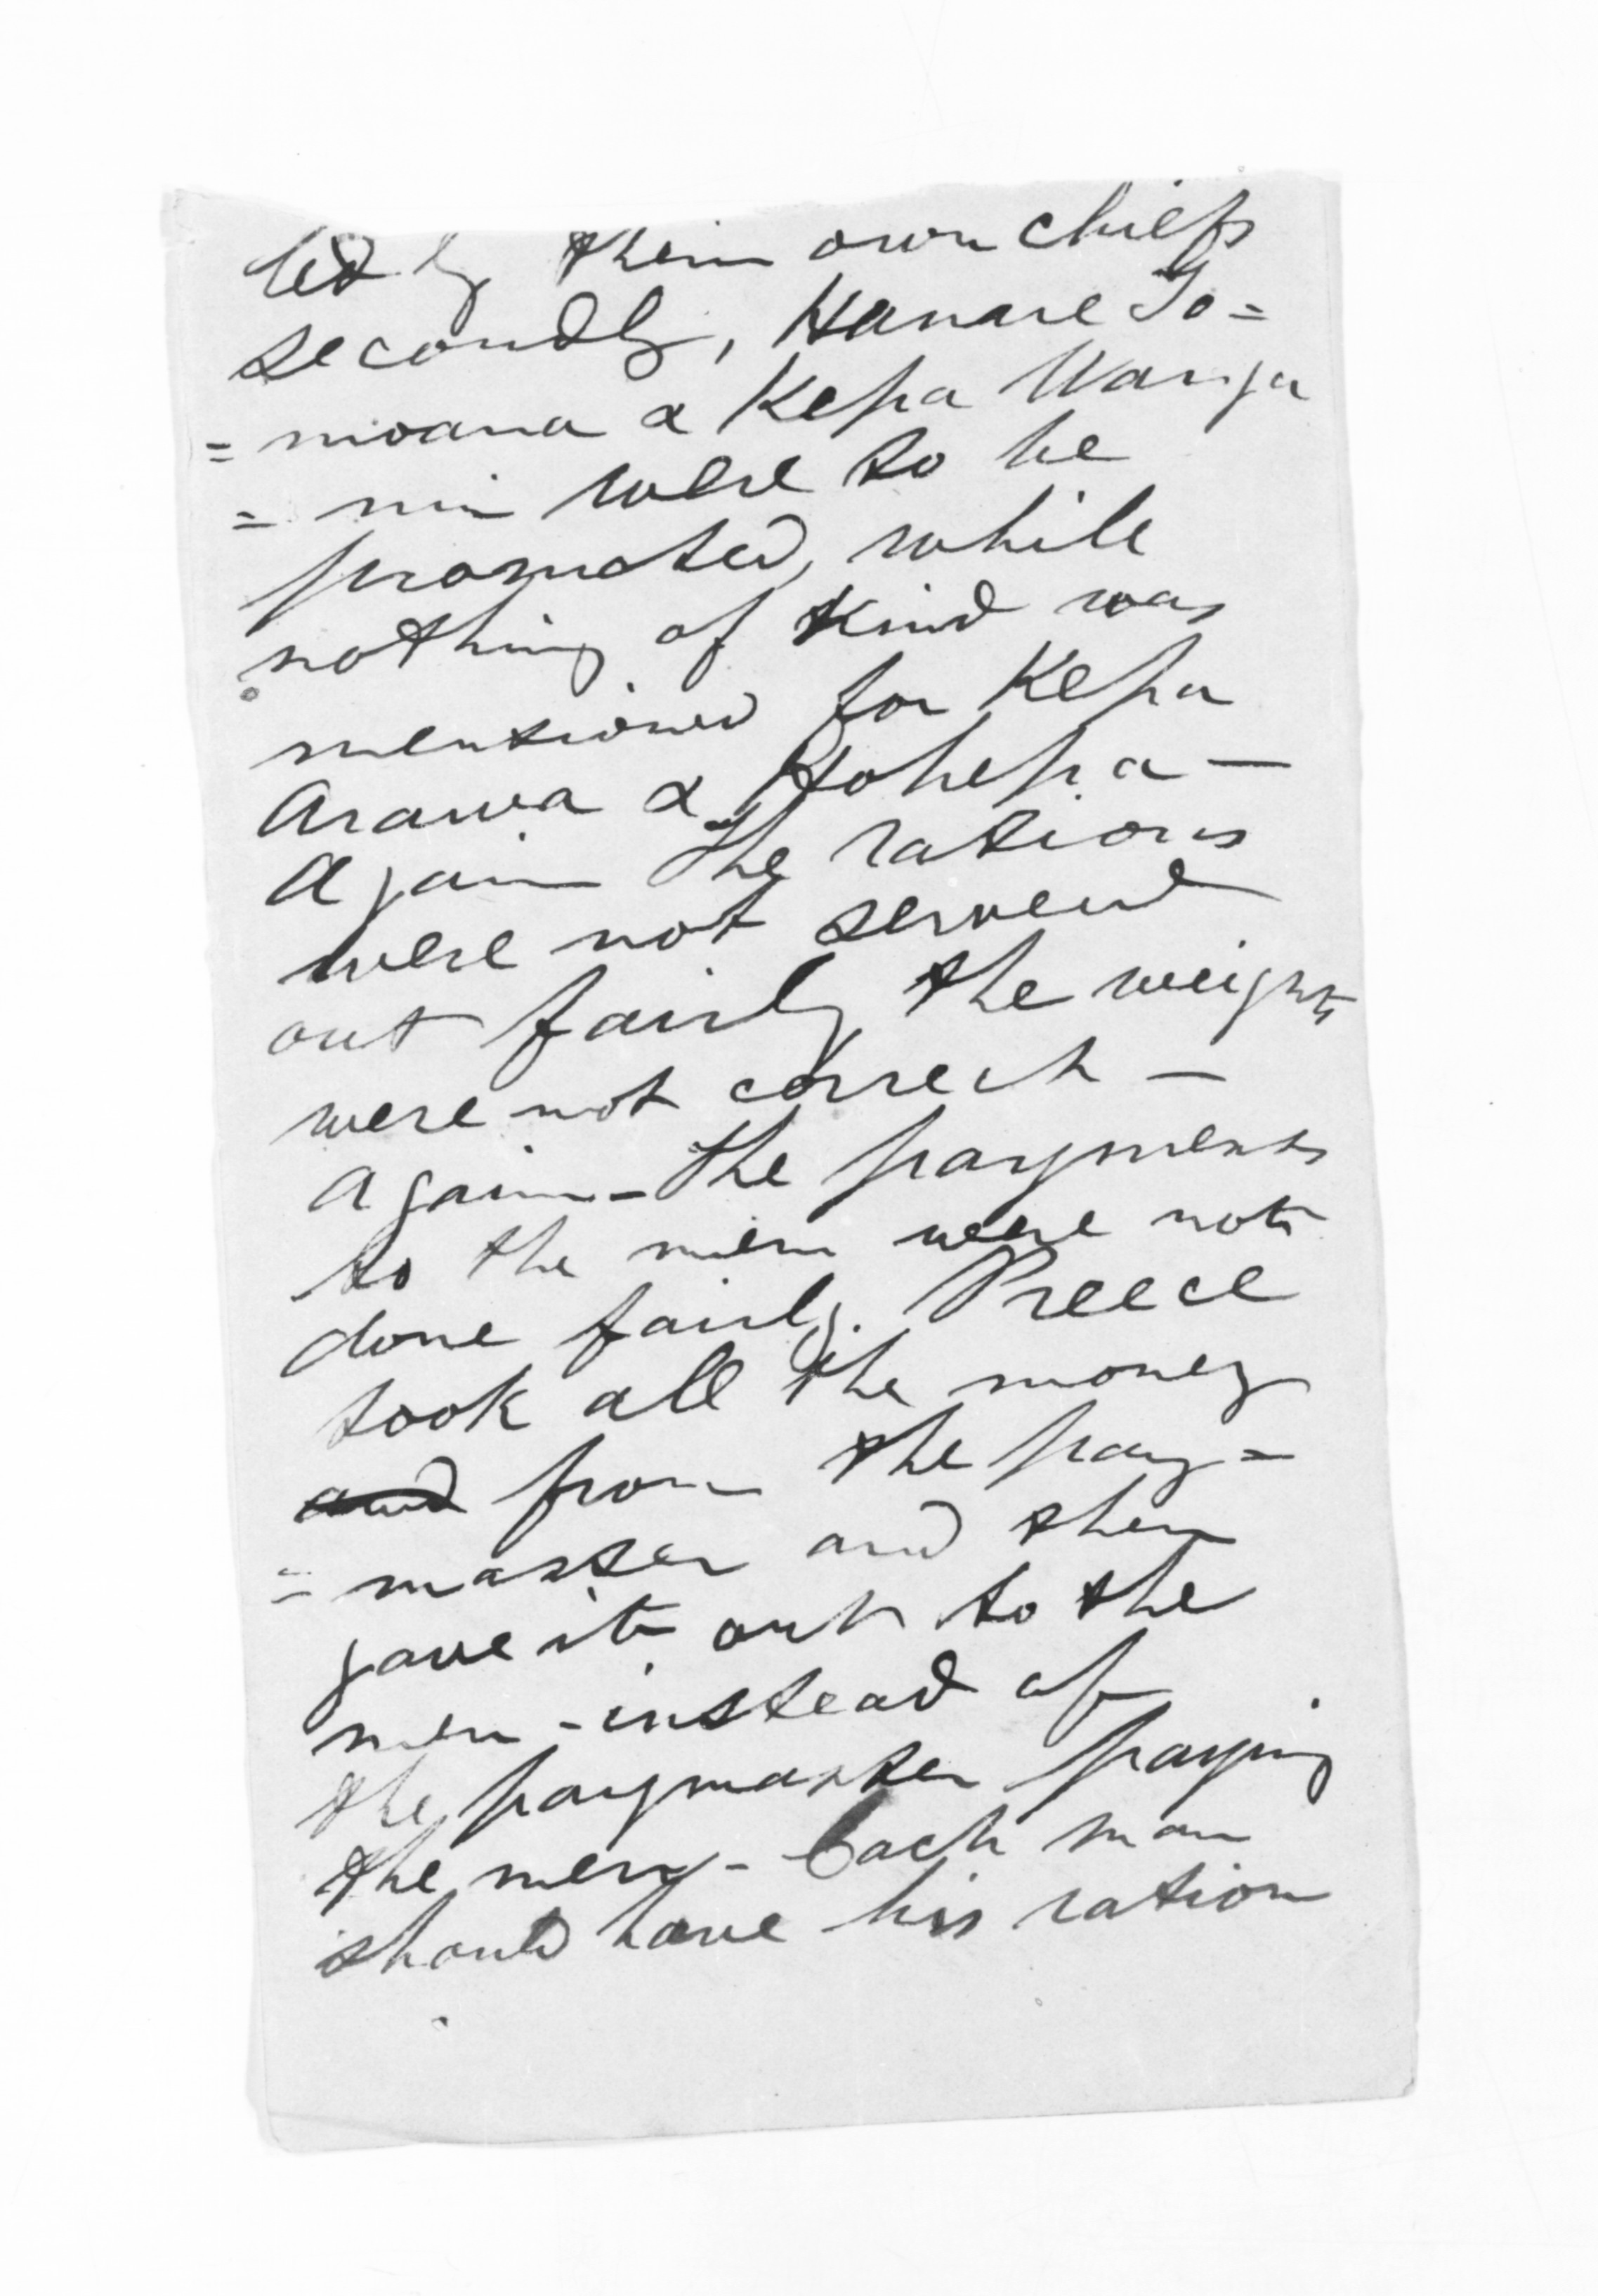 led by their own chiefs
secondly, Hanare To=
=moana & Kepa Wanga
=nui were to be
promoted, while
nothing of kind was
mentioned for Kepa
Arawa & Hohepa —
Again the rations
were not served
out fairly, the weights
were not correct —
Again - the payments
to the men were not
done fairly. Preece
took all the money
and from the pay=
=master and then
gave it out to the
men - instead of
the paymaster paying
the men - Each man
should have his ration